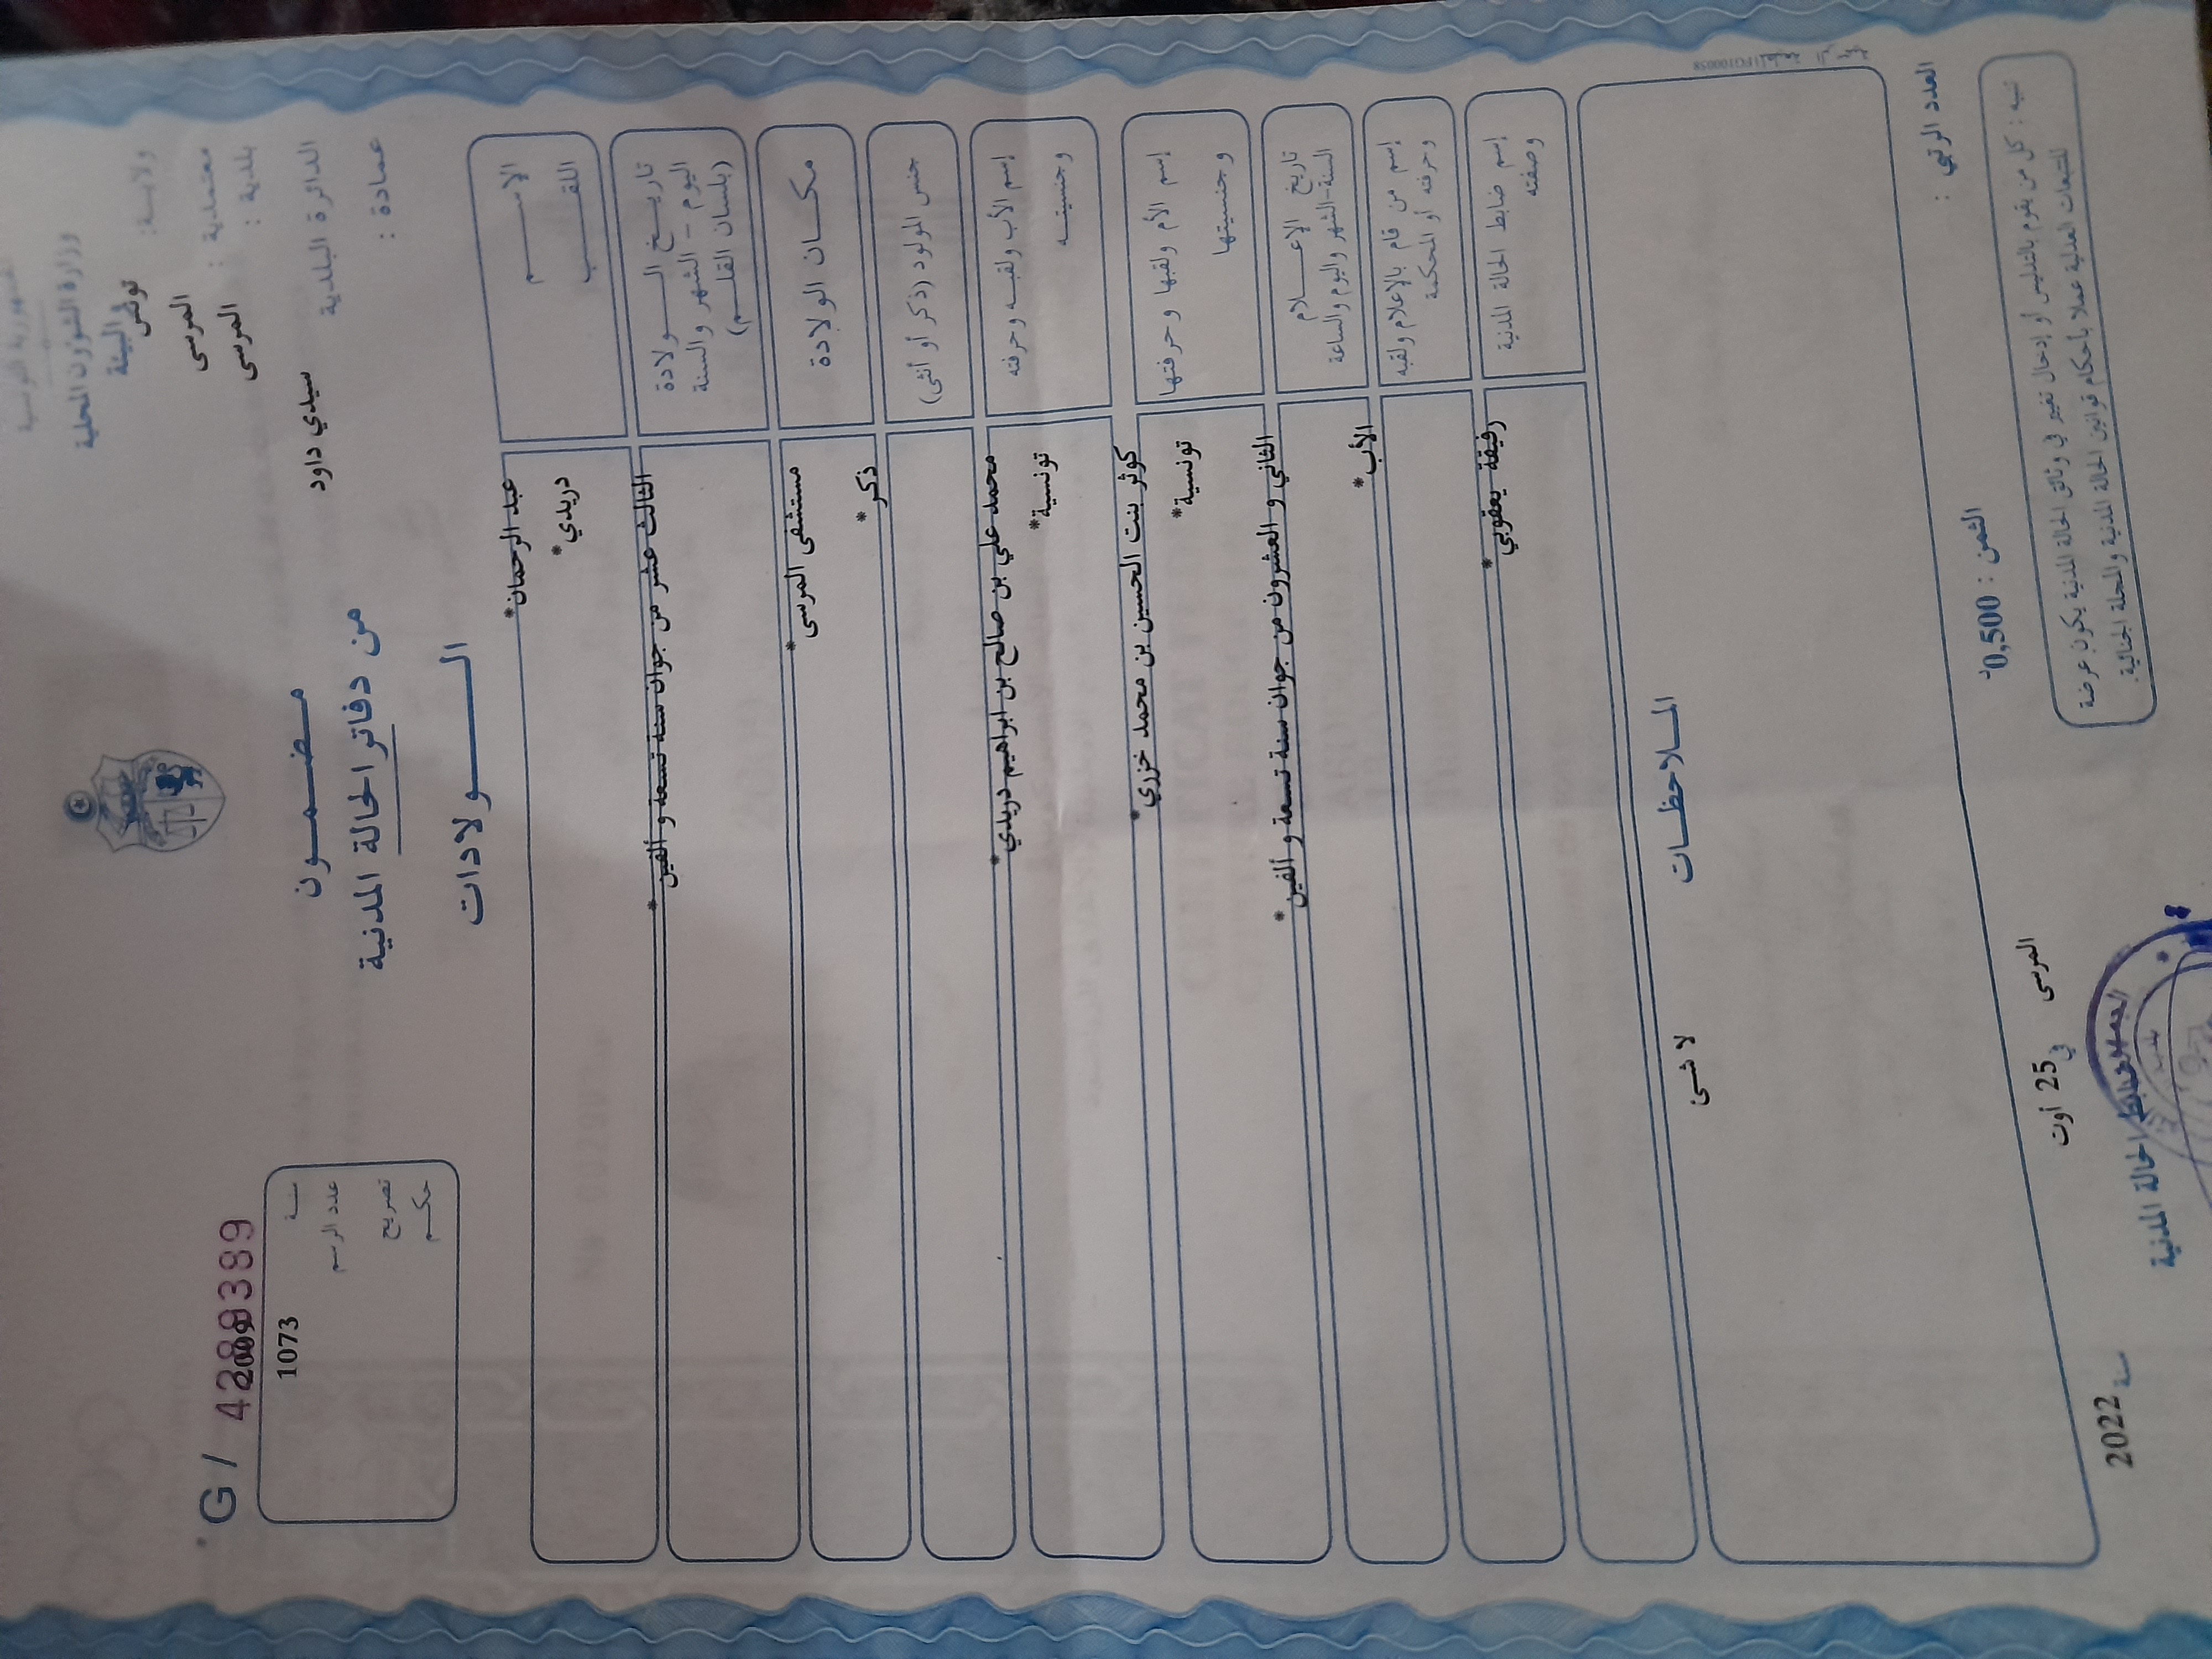 الجمهورية التونسية
وزارة الشؤون المحلية
والبيئة
ولايـــة: تونس
معتمدية : المرسى
بلدية : المرسى
الدائرة البلدية سيدي داود
عمادة :
مـضـمـــون
من دفاتر الحالة المدنية
الــــولادات
G / 4289389
سنة 2009
عدد الرسم 1073
تصريح
حكـم
الإســـــم عبد الرحمان*
اللقـــب دريدي*
تاريــخ الـــولادة
اليوم - الشهر والسنة
(بلسان القلـــم)
الثالث عشر من جوان سنة تسعة و ألفين*
مكـــان الولادة مستشفى المرسى*
جنس المولود (ذكر أو أنثى) ذكر*
إسم الأب ولقبـه وحرفته محمد علي بن صالح بن ابراهيم دريدي*
وجنسيتـــه تونسية*
إسم الأم ولقبها وحرفتها كوثر بنت الحسين بن محمد خزري*
وجنسيتها تونسية*
تاريخ الإعـــلام
السنة-الشهر واليوم والساعة
الثاني و العشرون من جوان سنة تسعة و ألفين*
إسم من قام بالإعلام ولقبه
وحرفته أو المحكمة
الأب*
إسم ضابط الحالة المدنية
وصفته
رفيقة يعقوبي*
المـلاحظـــات
لا شـئ
العدد الرتبي :
الثمن : 0,500د
المرسى في 25 أوت سنة 2022
ضابط الحالة المدنية
تنبيه : كل من يقوم بالتدليس أو إدخال تغيير في وثائق الحالة المدنية يكون عرضة
للتتبعات العدلية عملا بأحكام قوانين الحالة المدنية والمجلة الجنائية.